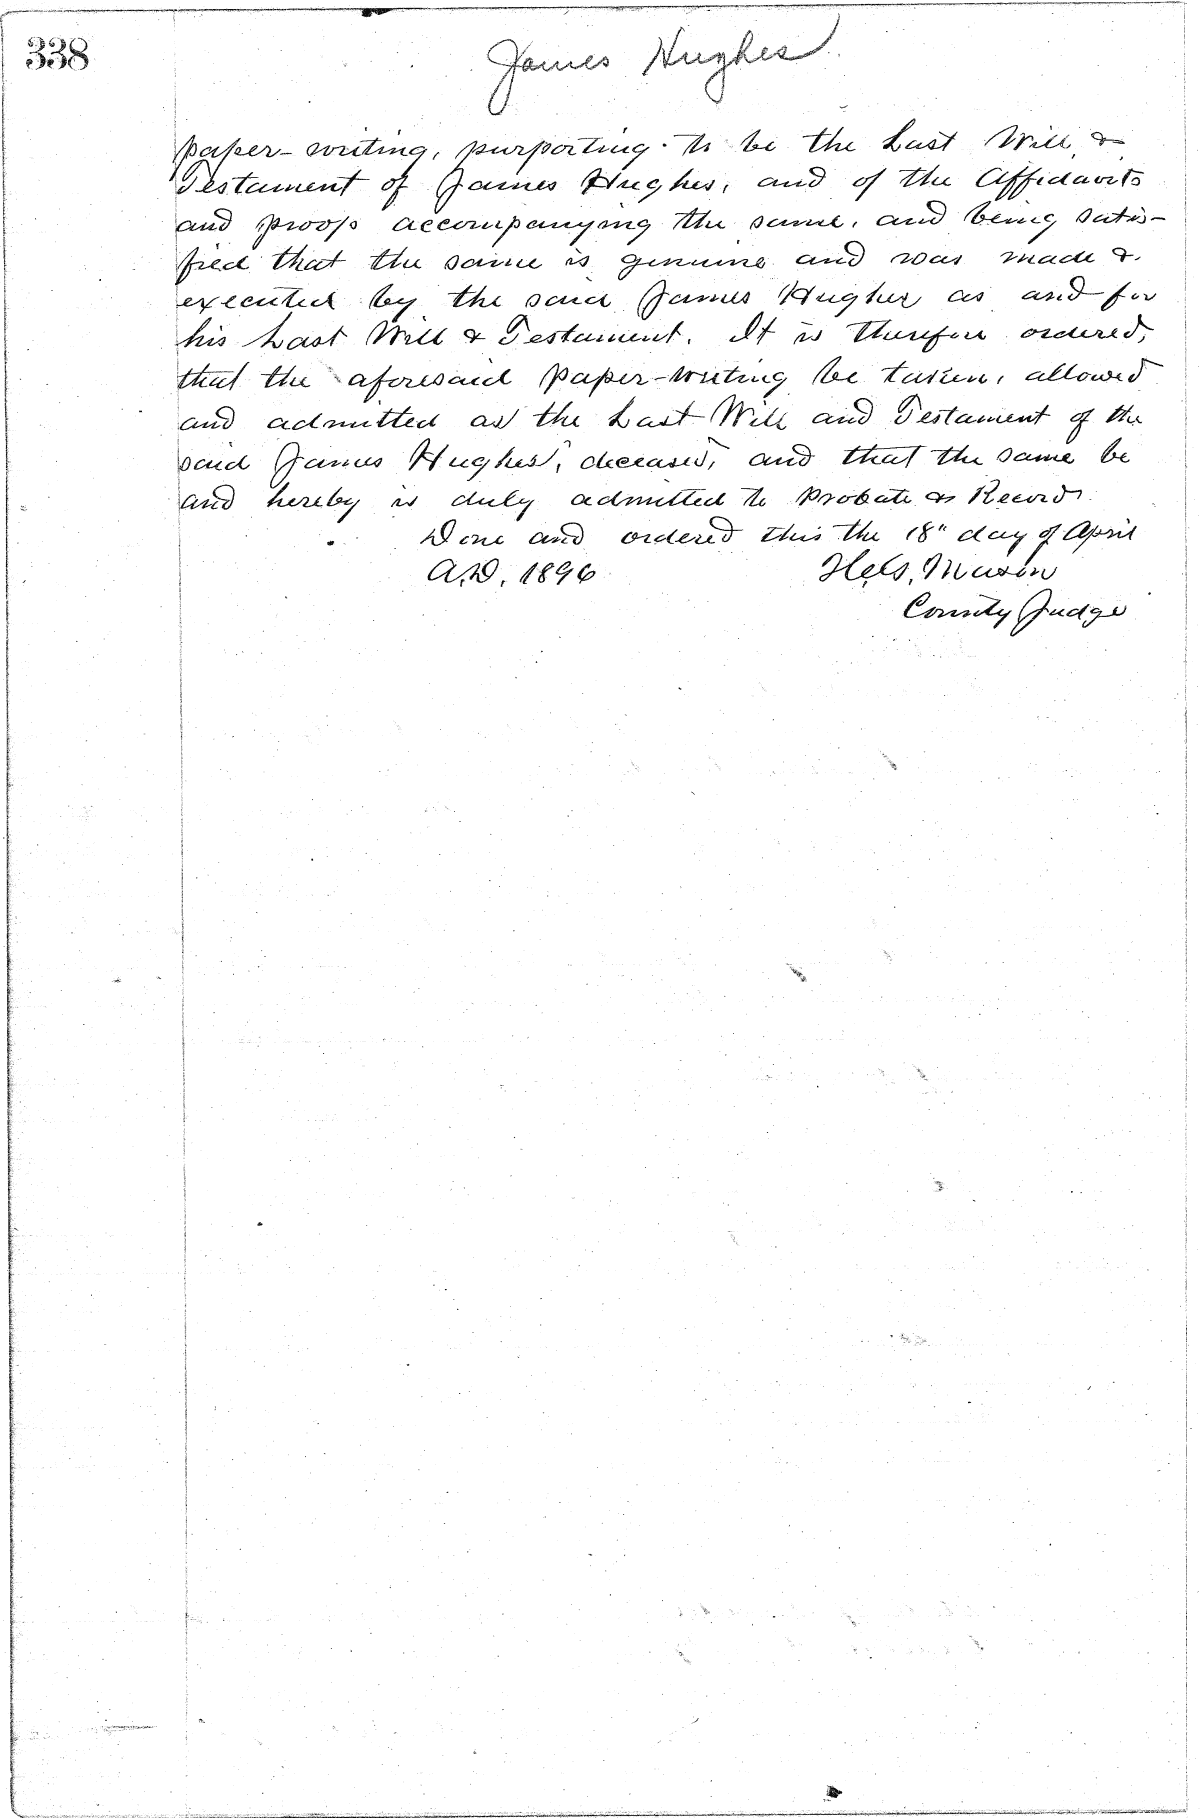 338
James Hughes
paper-writing, purporting to be the Last Will &
Testament of James Hughes, and of the Affidavits
and proofs accompanying the same, and being satis-
fied that the same is genuine and was made &
executed by the said James Hughes as and for
his Last Will & Testament. It is therefore ordered,
that the aforesaid paper-writing be taken, allowed
and admitted as the Last Will and Testament of the
said James Hughes, deceased, and that the same be
and hereby is duly admitted to Probate & Record.
Done and ordered this the 18" day of April
A.D. 1896
County Judge